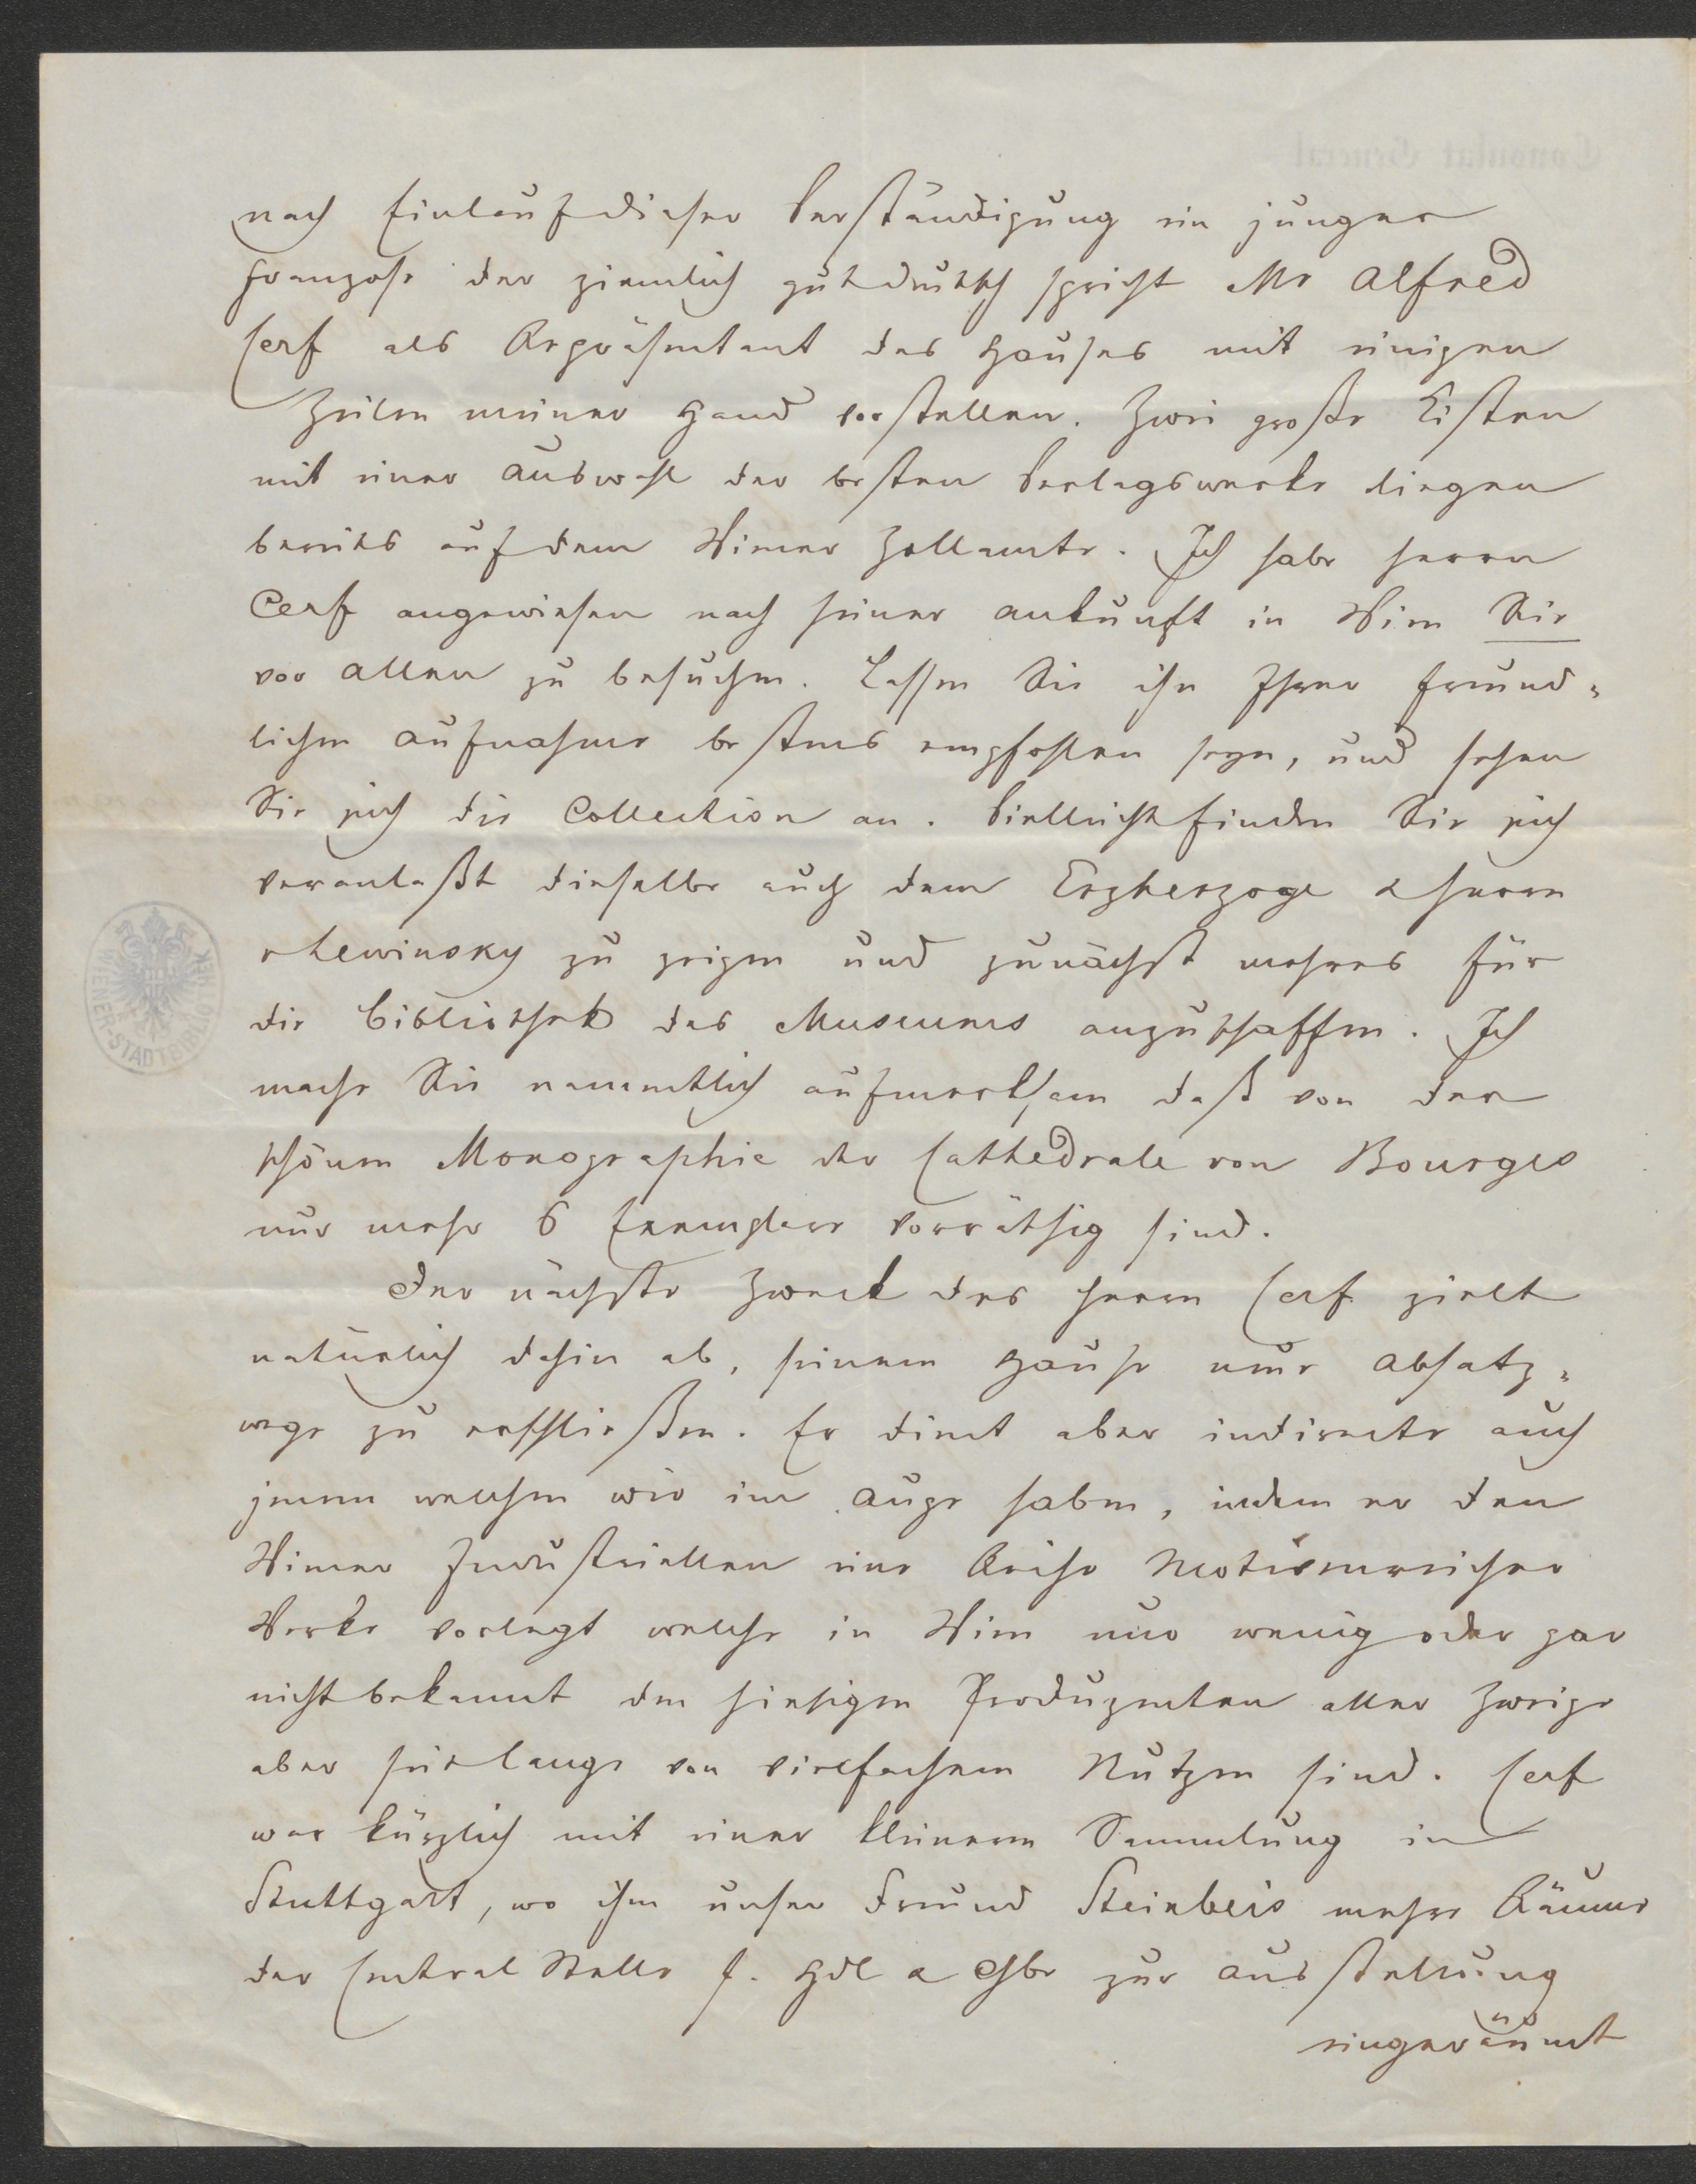 nach Einlauf dieser Verständigung ein junger
Franzose der ziemlich gut deutsch spricht Mr Alfred
Cerf als Repräsentant des Hauses mit einigen
Zeilen meiner Hand vorstellen. Zwei große Kisten
mit einer Auswahl der besten Verlagswerke liegen
bereits auf dem Wiener Zollamte. Ich habe Herrn
Cerf angewiesen nach seiner Ankunft in Wien Sie
vor Allen zu besuchen. Lassen Sie ihn Ihrer freund-
lichen Aufnahme bestens empfohlen seyn, und sehen
Sie sich die Collection an. Vielleicht finden Sie sich
veranlaßt dieselbe auch dem Erzherzoge & Herrn
v Lewinsky zu zeigen und zunächst mehres für
die Bibliothek des Museums anzuschaffen. Ich
mache Sie namentlich aufmerksam daß von der
schönen Monographie der Cathedrale von Bourges
nur mehr 6 Exemplare vorräthig sind.
Der nächste Zweck des Herrn Cerf zielt
natürlich dahin ab, seinem Hause neue Absatz-
wege zu erschließen. Er dient aber indirecte auch
jenem welchen wir im Auge haben, indem er den
Wiener Industriellen eine Reihe Motivenreicher
Werke vorlegt welche in Wien nur wenig oder gar
nicht bekannt den hiesigen Produzenten aller Zweige
aber seit lange von vielfachem Nutzen sind. Cerf
war kürzlich mit einer kleineren Sammlung in
Stuttgart, wo ihm unser Freund Steinbeis mehre Räume
der Central Stelle f. Hdl & Gbe zur Ausstellung
eingeräumt
WIENER-STADTBIBLIOTHEK
Consulat General